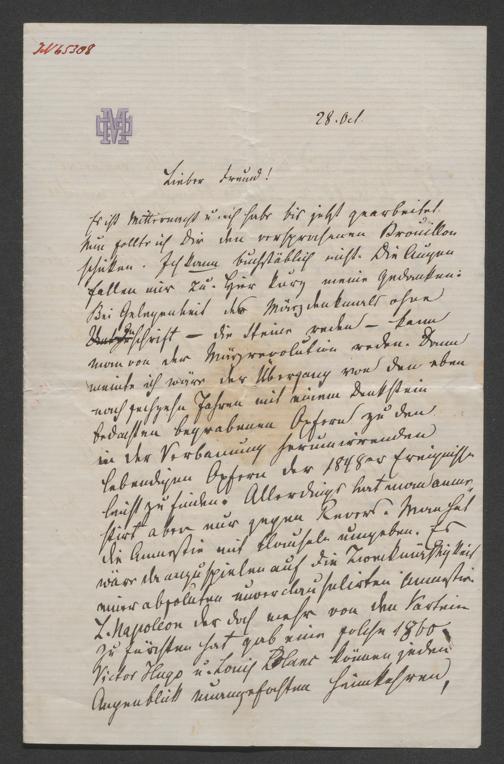 IN 65308
MH
28. Oct
Lieber Freund!
Es ist Mitternacht u. ich habe bis jetzt gearbeitet
Nun sollte ich Dir den versprochenen Brouillon
schicken. Ich kann buchstäblich nicht. Die Augen
fallen mir zu. Hier kurz meine Gedanken:
Bei Gelegenheit des Märzdenkmals ohne
Inschrift — die Steine reden — kann
man von der Märzrevolution reden. Dann
meinte ich wäre der Übergang von den eben
nach sechzehn Jahren mit einem Denkstein
bedachten begrabenen Opfern zu den
in der Verbannung herumirrenden
lebendigen Opfern der 1848er Ereignisse
leicht zu finden. Allerdings hat man amne-
stirt aber nur gegen Revers. Man hat
die Amnestie mit Clauseln umgeben. Es
wäre da anzuspielen auf die Zweckmäßigkeit
einer absoluten unverclausulirten Amnestie
L. Napoleon der doch mehr von den Partein
zu fürchten hat gab eine solche 1860
Victor Hugo u. Louis Blanc können jeden
Augenblick unangefochten heimkehren,